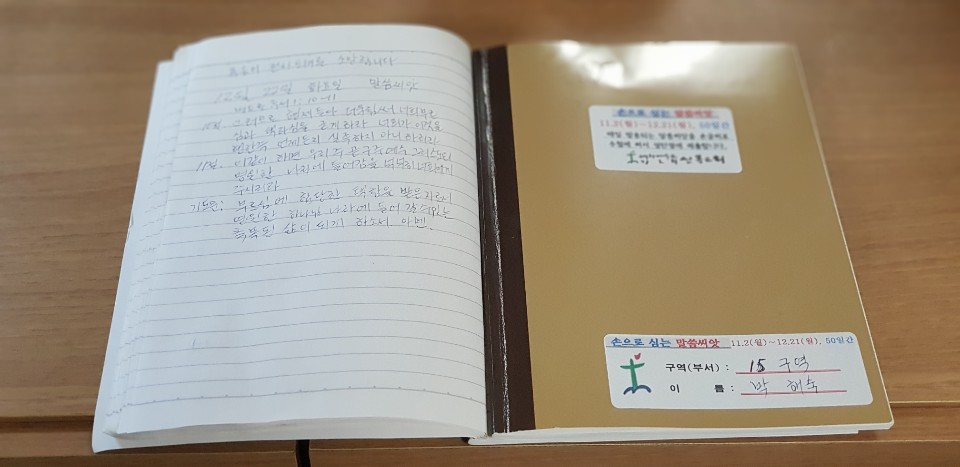 12월 22일 화요일 말씀씨앗
베드로후서 1: 10-11
10절 그러므로 형제들아 더욱 힘써 너희 부르
심과 택하심을 굳게 하라 너희가 이것을
행한즉 언제든지 실족하지 아니하리라
11절. 이같이 하면 우리 주 곧 구주 예수 그리스도의
영원한 나라에 들어감을 넉넉히 너희에게
주시리라
기도문: 부르심에 합당한 택함을 받은 자로서
영원한 하나님 나라에 들어 갈 수 있는
축복된 삶이 되게 하소서 아멘.
손으로 심는 말씀씨앗
11.2(월)~12.21(월), 50일간
매일 발송되는 말씀씨앗을 손글씨로
성복교회
손으로 심는 말씀씨앗 11.2(월)~12.21(월), 50일간
구역(부서) : 15 구역
이 름 : 박 해숙